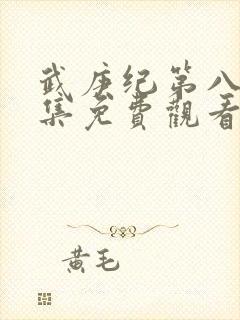 武庚纪第八
集免費觀看
黄毛